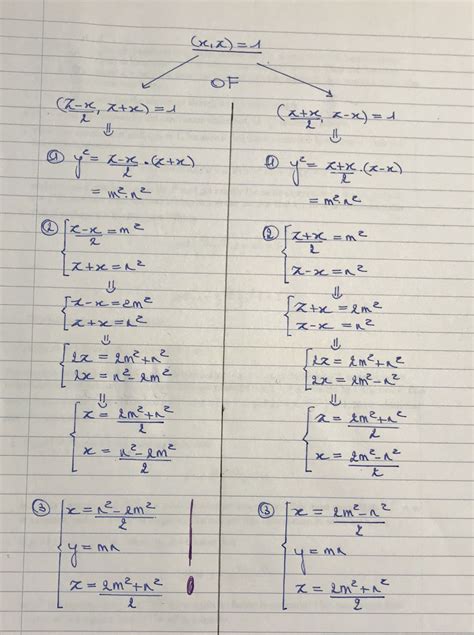 (x,z)=1
OF
(z-x/2, z+x)=1
⇓
① y²=z-x/2·(z+x)
=m²·n²
② {z-x/2=m²
z+x=n²
⇓
{z-x=2m²
z+x=n²
⇓
{2z=2m²+n²
2x=n²-2m²
⇓
{z=2m²+n²/2
x=n²-2m²/2
③ {x=n²-2m²/2
y=mn
z=2m²+n²/2
(z+x/2, z-x)=1
⇓
① y²=z+x/2·(z-x)
=m²·n²
② {z+x/2=m²
z-x=n²
⇓
{z+x=2m²
z-x=n²
⇓
{2z=2m²+n²
2x=2m²-n²
⇓
{z=2m²+n²/2
x=2m²-n²/2
③ {x=2m²-n²/2
y=mn
z=2m²+n²/2